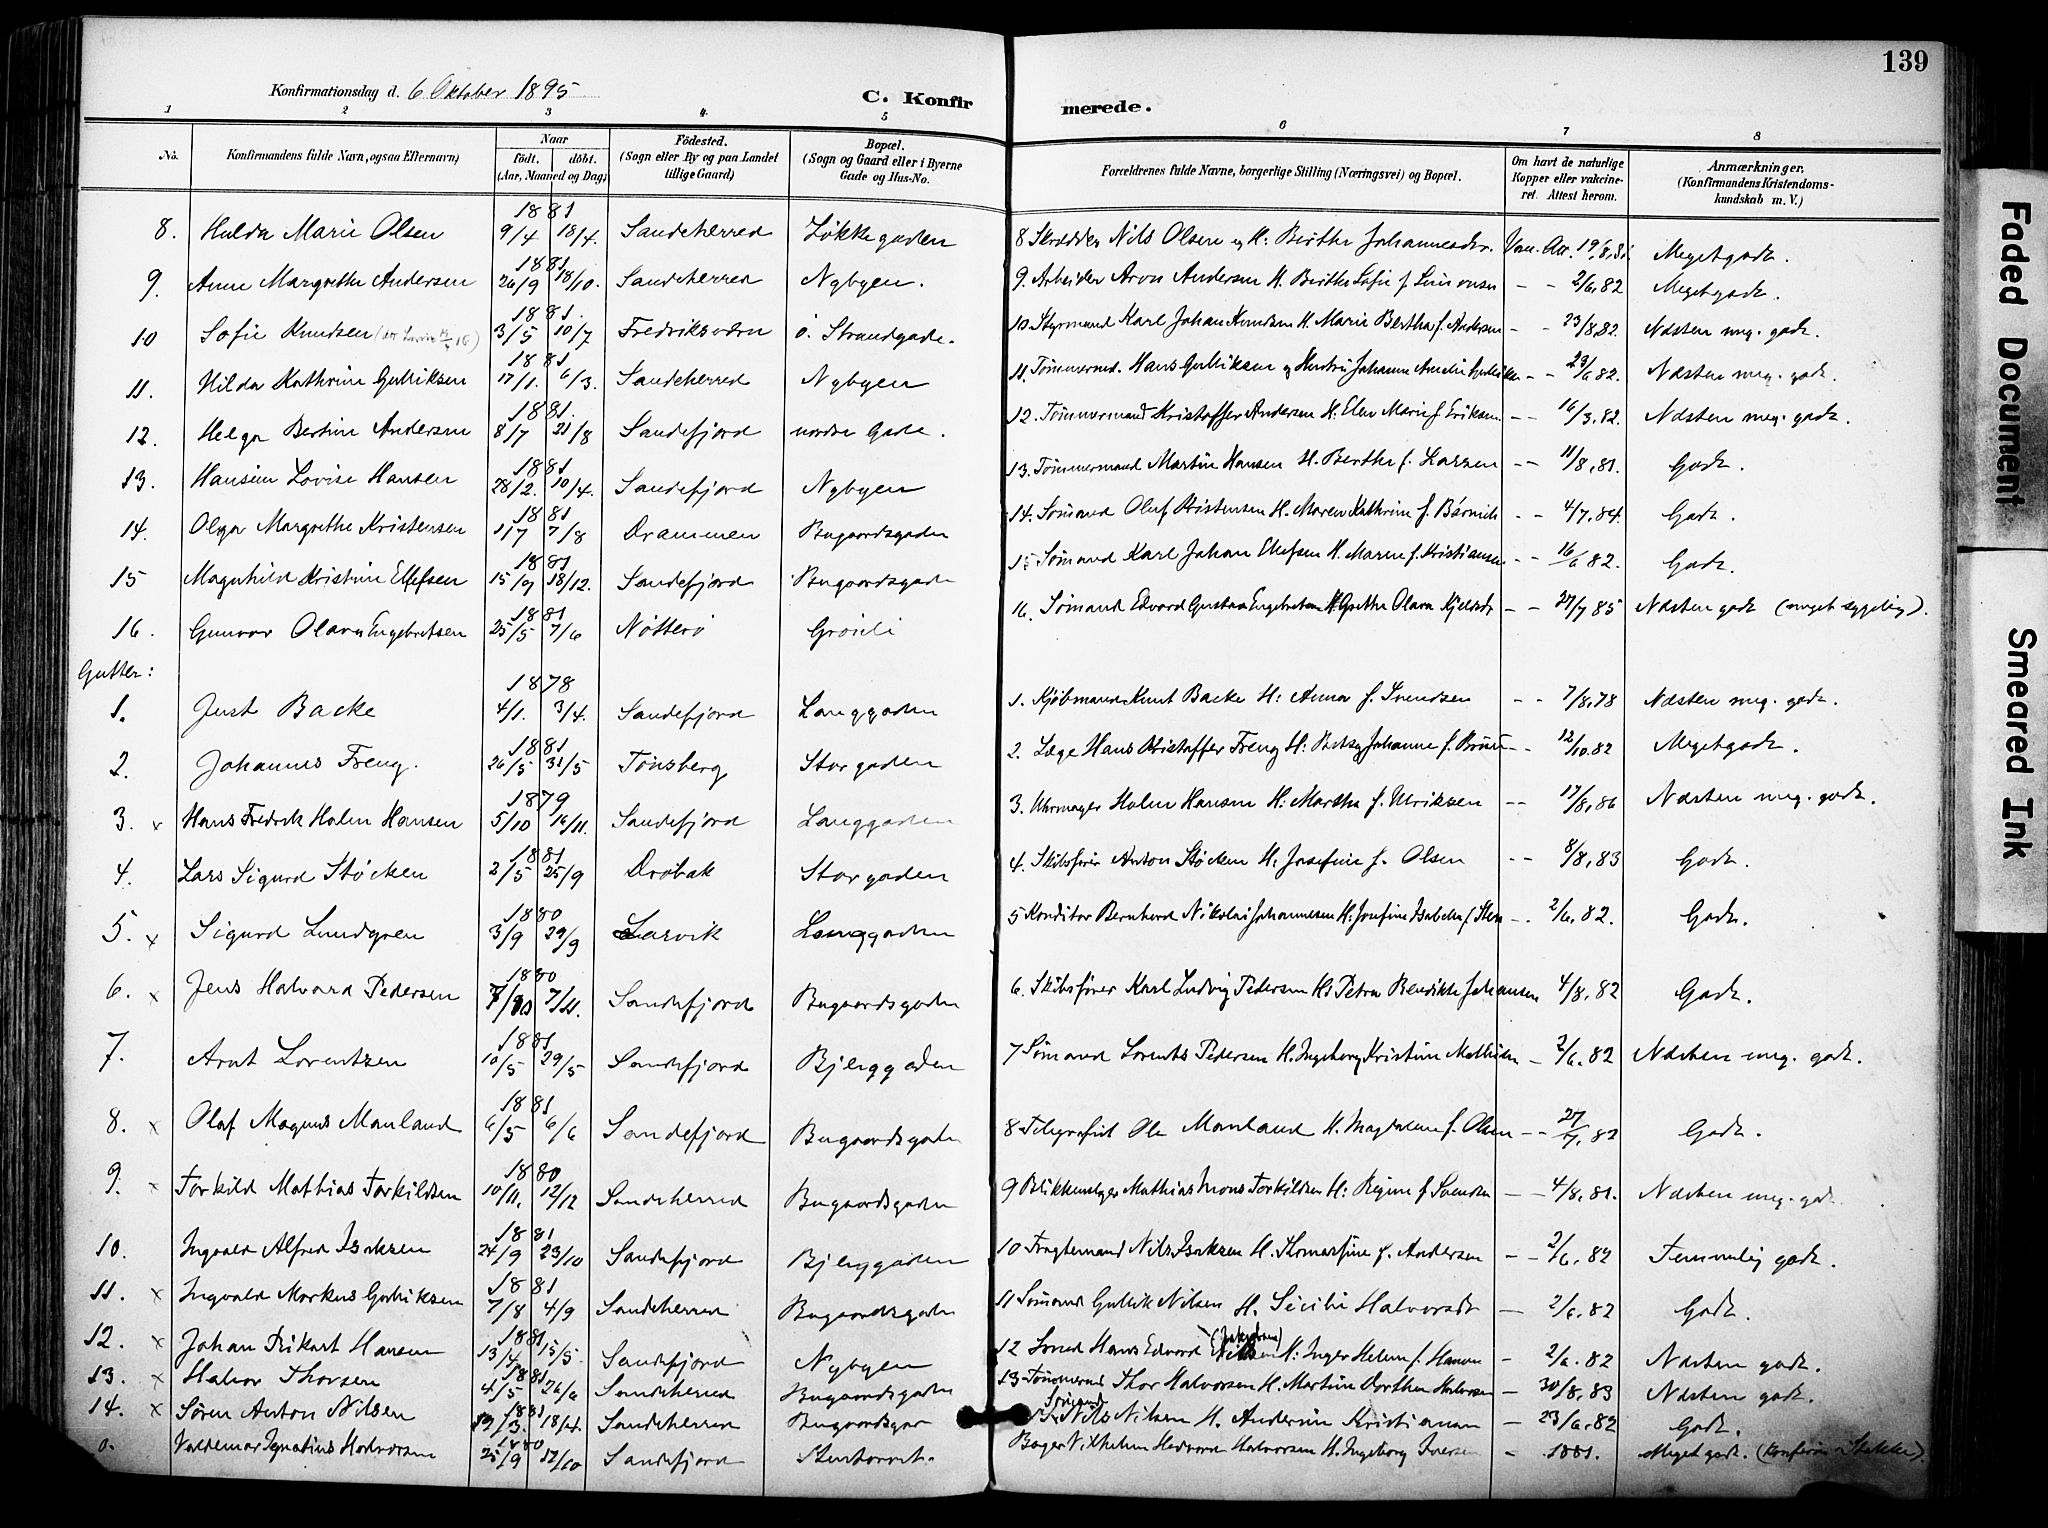 139
Konfirmationsdag d. 6 Oktober 1895
C. Konfirmerede.
1 2 3 4 5 6 7 8
No. Konfirmandens fulde Navn, ogsaa Efternavn) Naar født. døbt. (Aar, Maaned og Dag) Födested. (Sogn eller By og paa Landet tillige Gaard) Bopæl. (Sogn og Gaard eller i Byerne Gade og Hus-No. Forældrenes fulde Navne, borgerlige Stilling (Næringsvei) og Bopæl. Om havt de naturlige Kopper eller vakcineret. Attest herom. Anmærkninger. (Konfirmandens Kristendomskundskab m. V.)
8. Hulda Marie Olsen 1881 9/4 18/4. Sandeherred Løkkegaden 8 Skrædder Nils Olsen og H: Berthe Johannesdr. Vac. Att. 19/8.81 Meget godt.
9. Anne Margrethe Andersen 1881 26/9 18/10. Sandeherred Nybyen. 9. Arbeider Aron Andersen H. Berthe Sofie f. Simonsen - - 2/6.82 Meget godt.
10 Sofie Knudsen 1881. 3/5 10/7 Fredriksværn ö. Strandgade. 10 Styrmand Karl Johan Knudsen H. Marie Bertha f. Andersen - - 23/8.82. Næsten meg. godt.
11. Hilda Kathrine Gulliksen 1881 17/1. 6/3. Sandeherred Nybyen 11. Tømmermd. Hans Gulliksen og Hustru Johanne Amelie Gulliksen - - 23/6.82. Næsten meg. godt.
12. Helga Bertine Andersen 1881. 8/7 21/8 Sandefjord nordre Gade. 12. Tømmermand Kristoffer Andersen H. Elen Marie f. Eriksen - - 16/3.82. Næsten meg. godt.
13. Hansine Lovise Hansen 1881 28/2. 10/4. Sandefjord Nybyen 13. Tømmermand Martin Hansen H. Berthe f. Larsen - - 11/8.81. Godt.
14. Olga Margrethe Kristensen 1881 1/7 7/8 Drammen Bugaardsgaden 14. Sømand Oluf Kristensen H. Maren Kathrine f. - - 4/7.84. Godt.
15 Magnhild Kristine Ellefsen 1881 15/9 18/12. Sandefjord Bugaardsgade 15 Sømand Karl Johan Ellefsen H. Maren f. Kristiansen - - 16/6 82. Godt.
16. Gunvor Olava Engebretsen 1881 25/5 7/6 Nøtterø 16. Sømand Edvard Gustav Engebretsen H. Grethe Olava - - 27/7 85 Næsten godt (meget sygelig).
Gutter:
1. Just Backe 1878 4/1. 3/4. Sandefjord Langgaden 1. Kjøbmand Knut Backe H: Anna f. Svendsen - - 7/8.78 Næsten meg. godt.
2. Johannes Freng. 1881 26/5 31/5 Tønsberg Storgaden 2. Læge Hans Kristoffer Freng H: Betsy Johanne f. - - 12/10.82 Meget godt.
3. x Hans Fredrik Holm Hansen 1879 5/10 16/11. Sandefjord Langgaden 3. Uhrmager Holm Hansen H: Martha f. Ulriksen - - 17/8.86 Næsten meg. godt.
4. Lars Sigurd Støcken 1881 2/5 25/9 Drøbak Storgaden 4. Skibsfører Anton Støcken H. Josefine f. Olsen - - 8/8.83 Godt.
5. x Sigurd Lundgren 1880 3/9 29/9 Larvik Langgaden 5 Konditor Bernhard Nikolai Johannesen H. Josefine Isabella f. - - 2/6.82. Godt.
6. x Jens Halvard Pedersen 1880 7/10 7/11. Sandefjord Bugaardsgaden 6. Skibsfører Karl Ludvig Pedersen H: Petra Bendikte Johansen 4/8.82 Godt.
7. Arnt Lorentzen 1881 10/5 29/5 Sandefjord Bjerggaden 7 Sømand Lorents Pedersen H. Ingeborg Kristine Mathisen - 2/6.82 Næsten meg. godt.
8. x Olaf Magnus Manland 1881 6/5 6/6 Sandefjord Bugaardsgaden 8 Telegrafist Ole Manland H. Magdalene f. Olsen - - 27/7.82 Godt.
9. x Torkild Mathias Torkildsen 1880 10/11. 12/12 Sandeherred Bugaardsgaden 9 Blikkenslager Mathias Mons Torkildsen H: Regine f. Svendsen - - 4/8.81. Næsten meg. godt
10. Ingvald Alfred Isaksen 1881 24/9 23/10 Sandefjord Bjerggaden 10 Fragtemand Nils Isaksen H. Thomasine f. Andersen - - 2/6.82 Temmelig godt.
11. x Ingvald Markus Gulliksen 1881 7/8 4/9 Sandeherred Bugaardsgaden 11 Sømand Gullik Nilsen H. Sicilie Halvorsdr - 2/6.82 Godt.
12. x Johan Rikart Hansen 1881 13/4 15/5. Sandefjord Nybyen 12 Sømd Hans Edvard Nilsen H: Inger Helene f. Hansen - 2/6.82 Næsten godt.
13. x Halvor Thorsen 1881 4/5 26/6 Sandeherred Bugaardsgaden 13 Tømmermd Thor Halvorsen H. Martine Dorthea Halvorsen - 30/8.83 Næsten godt.
14. x Søren Anton Nilsen 1881 19/3. 18/4. Sandeherred Bugaardsgad Sømand Nils Nilsen H. Andrine Kristiansen - 23/6.82 Godt.
0. Valdemar Ignatius Halvorsen 1880 25/9 17/10 Sandefjord Stentorvet. Bager Vilhelm Halvorsen H. Ingeborg Iversen - 1881. Meget godt. (Konfirm. i Stokke).
Faded Document
Smeared Ink